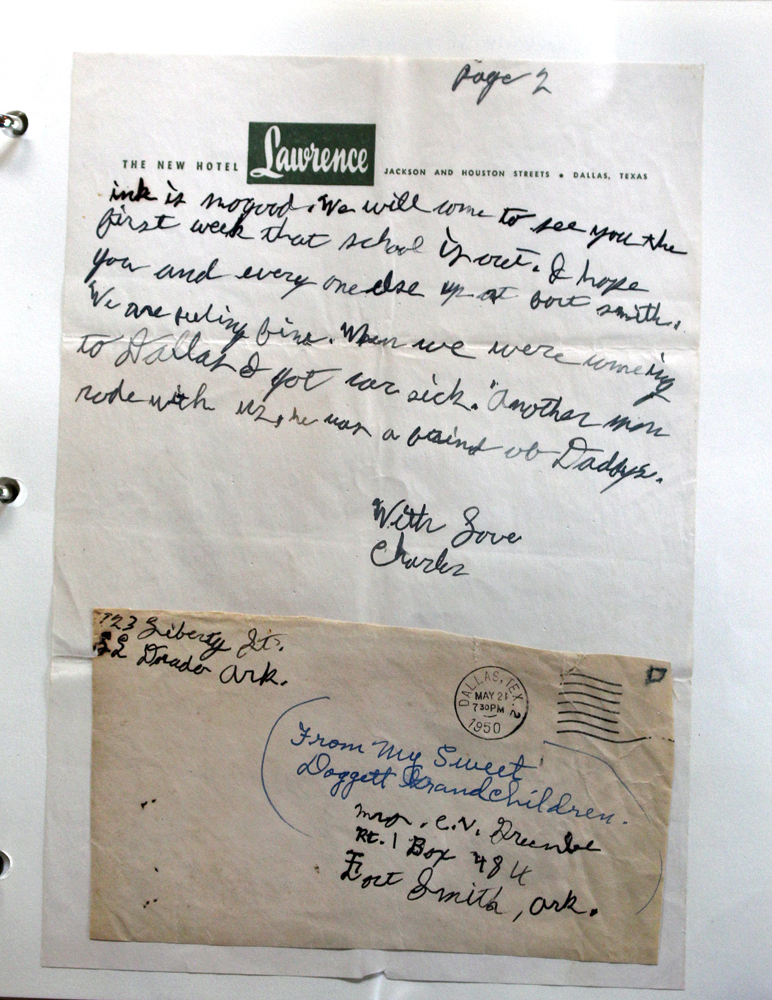 Page 2
THE NEW HOTEL Lawrence JACKSON AND HOUSTON STREETS • DALLAS, TEXAS
ink is nogood. We will come to see you the
first week that school is out. I hope
you and every one else up at Fort Smith.
We are feeling fine. When we were comeing
to Dallas I got car sick. Another man
rode with us, he was a freind of Daddys.
With Love
Charles
723 Liberty St.
El Dorado Ark.
DALLAS, TEX. 2
MAY 21
730PM
1950
From My Sweet
Doggett Grandchildren.
Mrs. C.V.
Rt. 1 Box 484
Fort Smith, Ark.